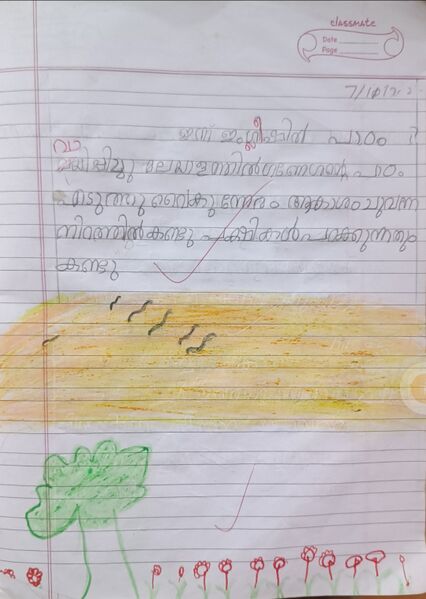 classmate
Date
Page
ഇന്ന് ഇംഗ്ലീഷിൽ പാഠം 1
വാ
യിപ്പിച്ചു മലയാളത്തിൽ പാഠം
എടുത്തു വൈകുന്നേരം ആകാശം ചുവന്ന
നിറത്തിൽ കണ്ടു പക്ഷികൾ പറക്കുന്നതും
കണ്ടു